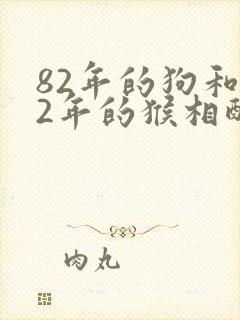 82年的狗和
2年的猴相配
肉丸